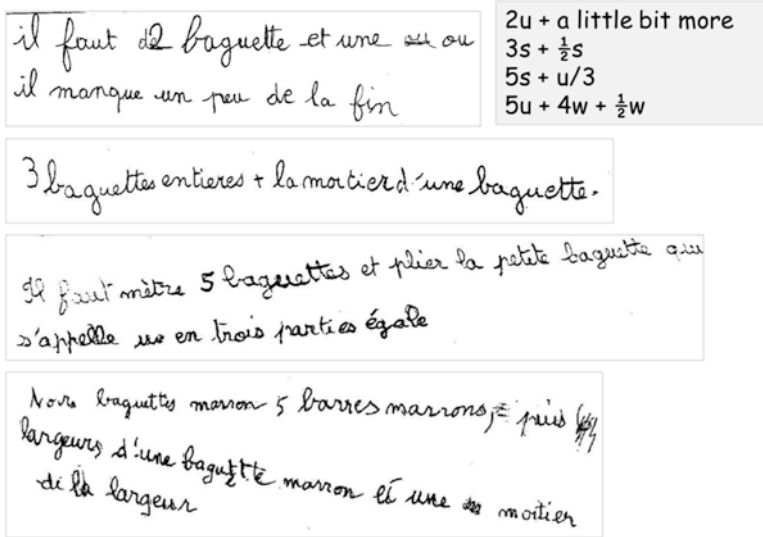 il faut d2 baguette et une ou
il manque un peu de la fin
2u + a little bit more
3s + ½s
5s + u/3
5u + 4w + ½w
3 baguettes entieres + la moitier d'une baguette.
Il faut mètre 5 baguettes et plier la petite baguette qui
s'appelle en trois parties égale
baguettes marron 5 barres marrons, puis
largeurs d'une baguette marron et une moitier
de la largeur